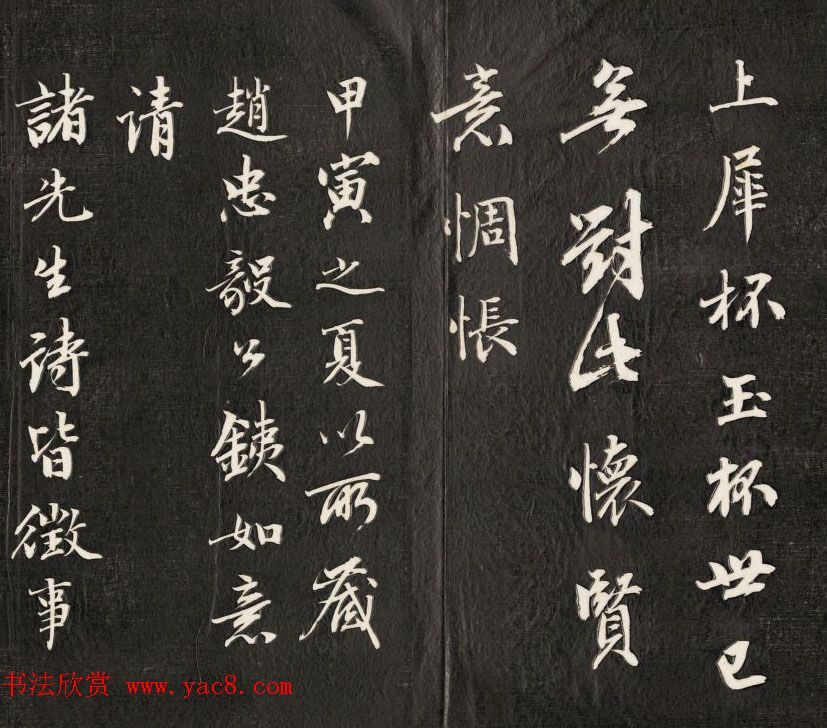 上犀杯玉杯世已
無對此懷賢
意惆悵
甲寅之夏以所藏
趙忠毅公鐵如意
请
諸先生诗皆徵事
书法欣赏 www.yac8.com